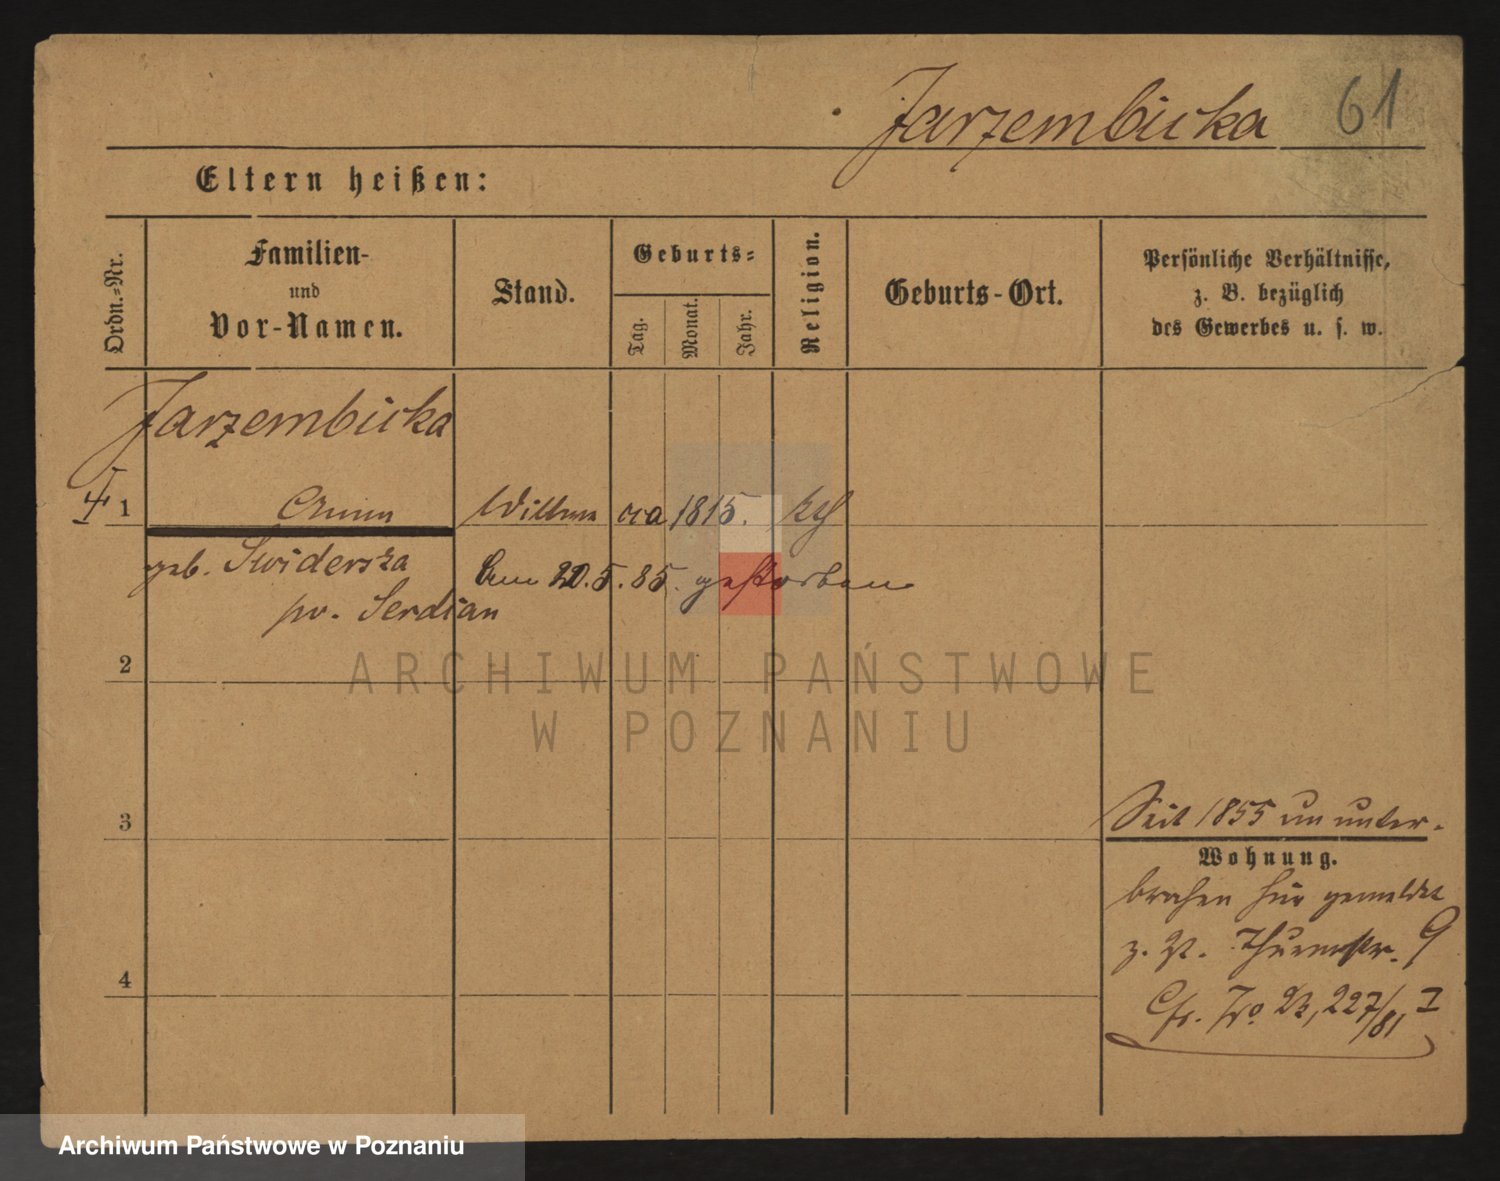 Jarzembicka 61
Eltern heißen:
Ordn.-Nr.
Familien-
und
Vor-Namen.
Stand.
Geburts-
Tag.
Monat.
Jahr.
Religion.
Geburts-Ort.
Persönliche Verhältnisse,
z. B. bezüglich
des Gewerbes u. s. w.
Jarzembicka
1 Anna Wittwe cca 1815. kth
geb. Swiderska Am 20.5.85. gestorben
pv. Serdian
2
ARCHIWUM PAŃSTWOWE
W POZNANIU
3 Seit 1855 un unter-
Wohnung.
brochen hier gemeldet
z. Zt. Thurmstr. 9
Cfr. 227/81, I
4
Archiwum Państwowe w Poznaniu